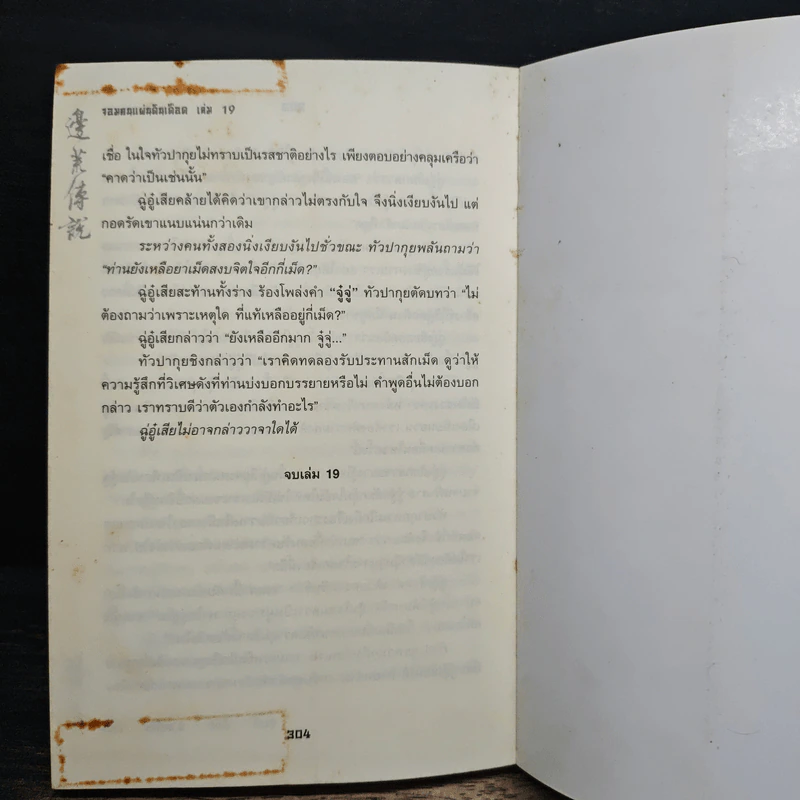 จอมคนแผ่นดินเดือด เล่ม 19
邊荒傳說
เชื่อ ในใจทัวปากุยไม่ทราบเป็นรสชาติอย่างไร เพียงตอบอย่างคลุมเครือว่า
“คาดว่าเป็นเช่นนั้น”
ฉู่อู๋เสียคล้ายได้คิดว่าเขากล่าวไม่ตรงกับใจ จึงนิ่งเงียบงันไป แต่
กอดรัดเขาแนบแน่นกว่าเดิม
ระหว่างคนทั้งสองนิ่งเงียบงันไปชั่วขณะ ทัวปากุยพลันถามว่า
“ท่านยังเหลือยาเม็ดสงบจิตใจอีกกี่เม็ด?”
ฉู่อู๋เสียสะท้านทั้งร่าง ร้องโพล่งคำ “จู๋จู่” ทัวปากุยตัดบทว่า “ไม่
ต้องถามว่าเพราะเหตุใด ที่แท้เหลืออยู่กี่เม็ด?”
ฉู่อู๋เสียกล่าวว่า “ยังเหลืออีกมาก จู๋จู่...”
ทัวปากุยชิงกล่าวว่า “เราคิดทดลองรับประทานสักเม็ด ดูว่าให้
ความรู้สึกที่วิเศษดังที่ท่านบ่งบอกบรรยายหรือไม่ คำพูดอื่นไม่ต้องบอก
กล่าว เราทราบดีว่าตัวเองกำลังทำอะไร”
ฉู่อู๋เสียไม่อาจกล่าววาจาใดได้
จบเล่ม 19
304